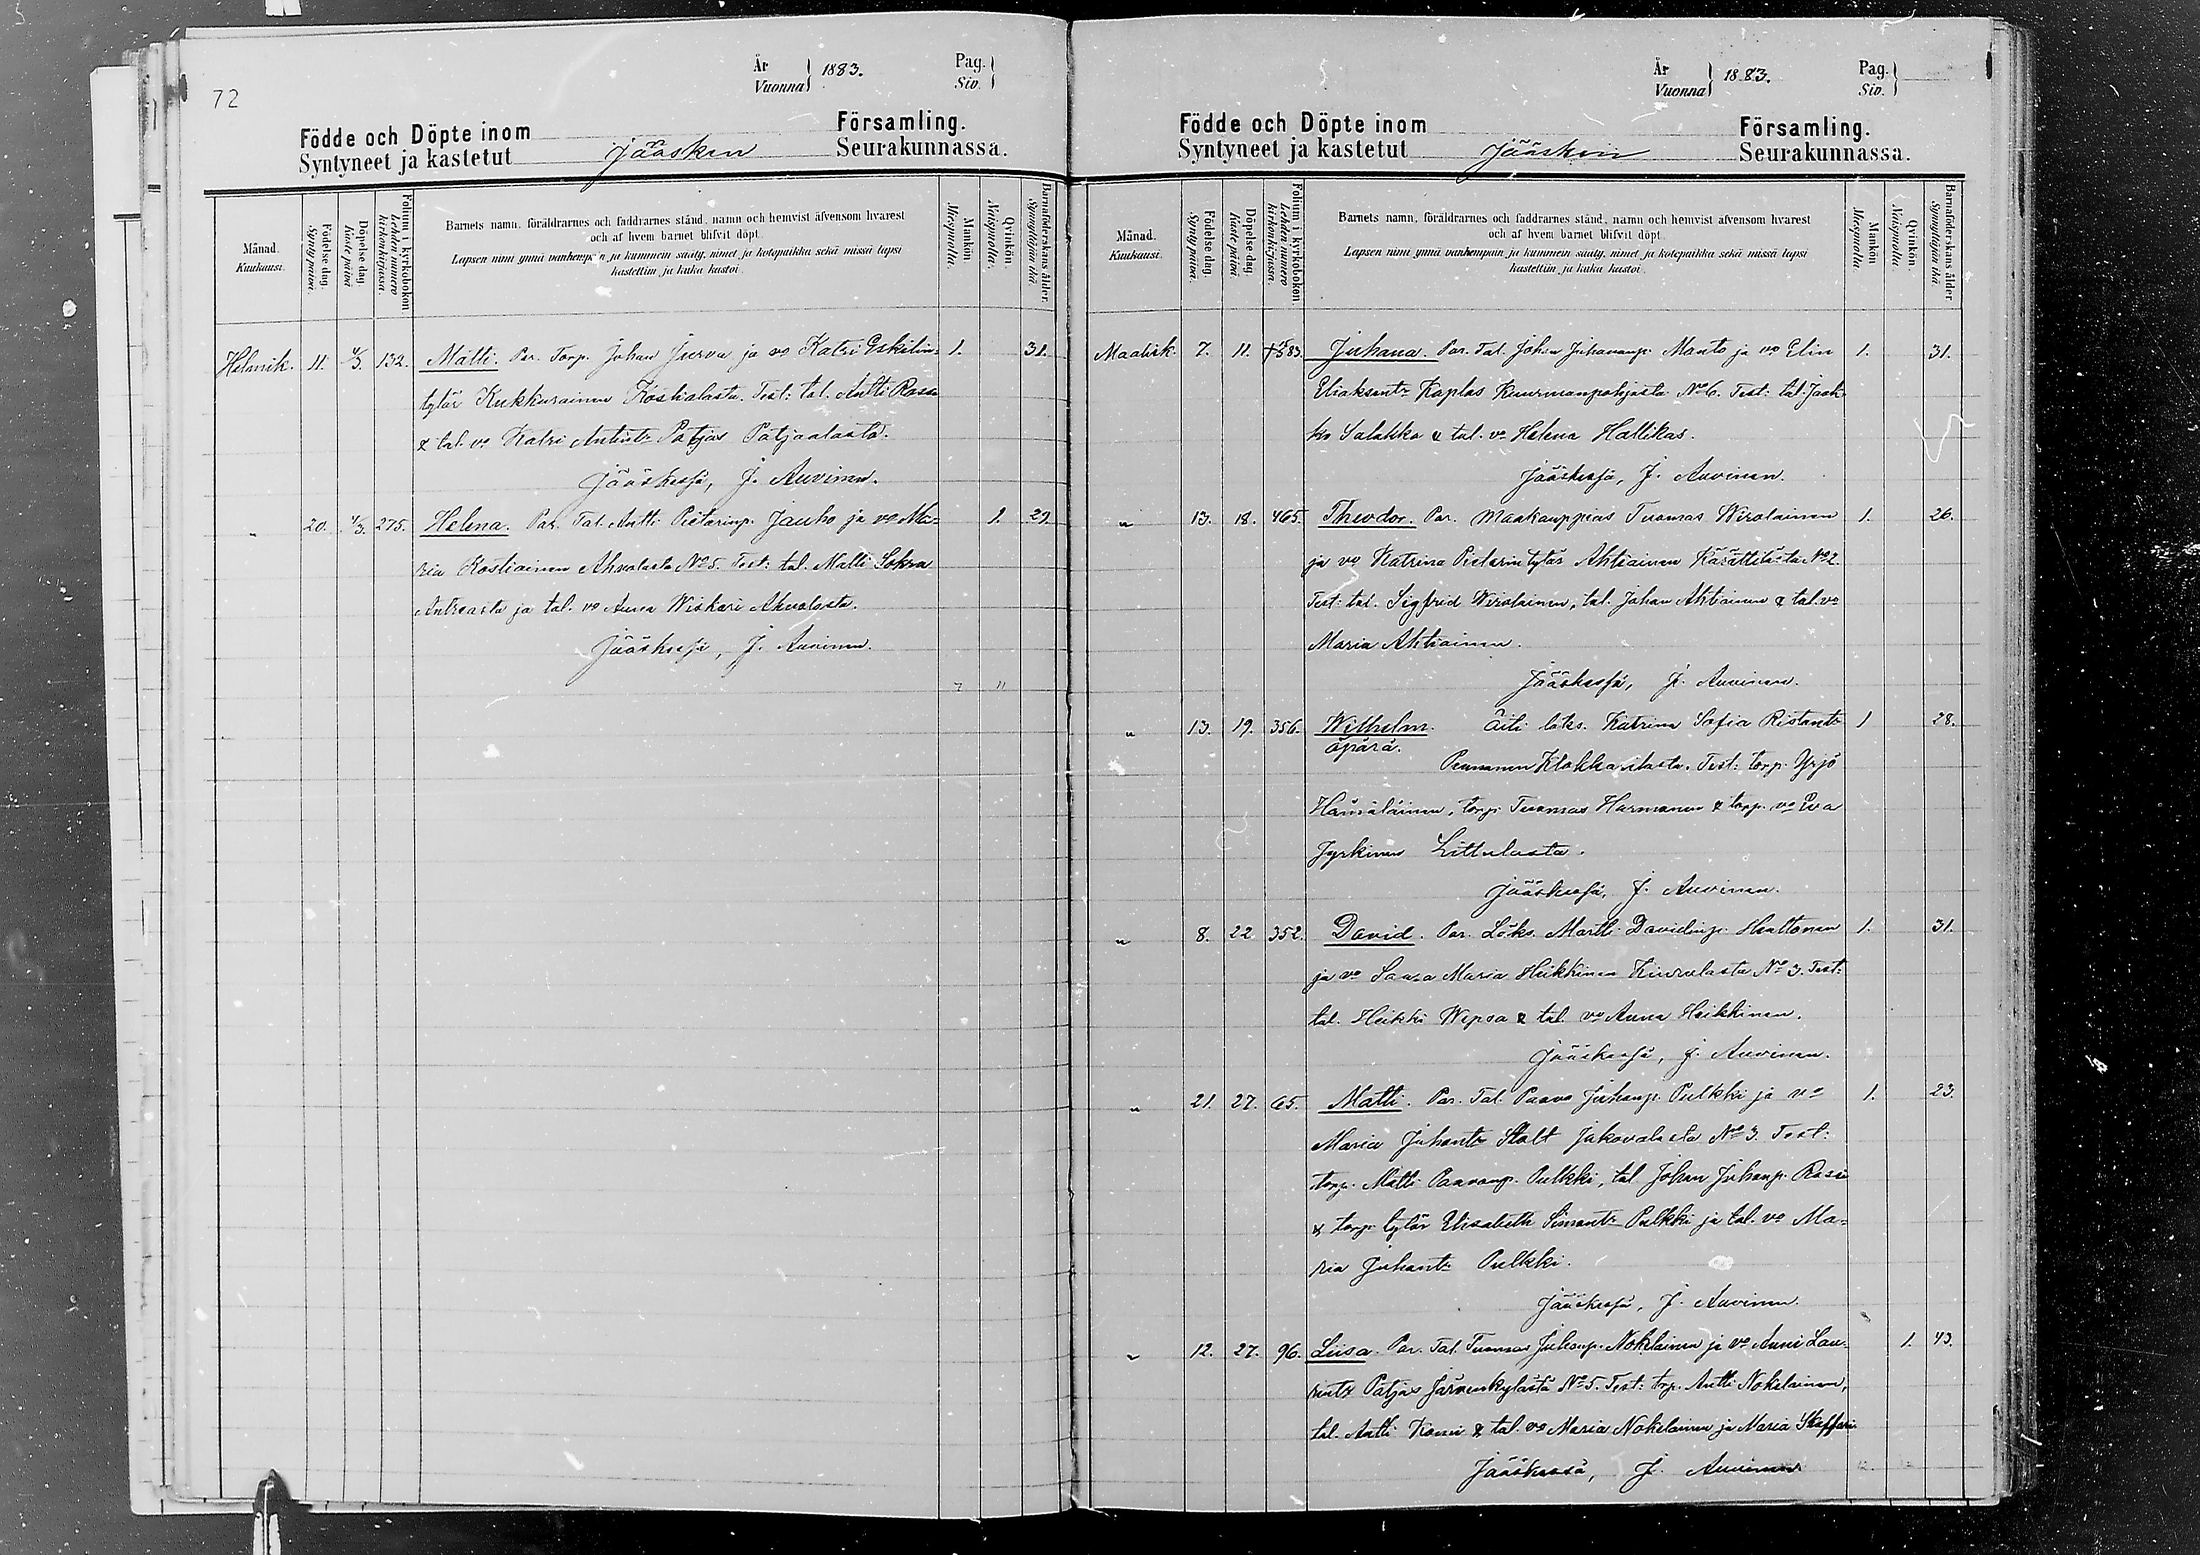 72
År
Vuonna
1883.
Pag.
Siv.
Födde och Döpte inom
Församling.
Syntyneet ja kastetut Jääsken Seurakunnassa.
Månad.
Kuukausi.
Födelse dag.
Synty päivä.
Döpelse dag.
Kaste päivä
Folium i kyrkoboken
Lehden numero kirkonkirjassa.
Barnets namn, föräldrarnes och faddrarnes stånd, namn och hemvist äfvensom hvarest
och af hvem barnet blifvit döpt.
Lapsen nimi ynnä vanhempain ja kummein sääty, nimet ja kotopaikka sekä missä lapsi
kastettiin ja kuka kastoi.
Mankön
Miespuolia.
Qvinkön.
Naispuolia.
Barnaföderskans ålder.
Synnyttäjän ikä.
Helmik. 11. 4/3. 132. Matti. Par. Torp. Johan Jurva ja vo Katri Eskilin- 1. 31.
tytär Kukkurainen Koskialasta. Test: tal. Antti Rossi
& tal. vo Katri Antintr Patjas Patjaalasta.
Jääskessä, J. Auvinen.
" 20. 4/3. 275. Helena. Par. Tal. Antti Pietarinp. Jauho ja vo Ma- 1. 29
ria Kostiainen Ahvolasta No 5. Test: tal. Matti Sokra
Antreasta ja tal. vo Anna Wiskari Ahvolasta.
Jääskessä, J. Auvinen.
7 11
År
Vuonna
1883.
Pag.
Siv.
Födde och Döpte inom
Församling.
Syntyneet ja kastetut Jääsken Seurakunnassa.
Månad.
Kuukausi.
Födelse dag.
Synty päivä.
Döpelse dag.
Kaste päivä
Folium i kyrkoboken
Lehden numero kirkonkirjassa.
Barnets namn, föräldrarnes och faddrarnes stånd, namn och hemvist äfvensom hvarest
och af hvem barnet blifvit döpt.
Lapsen nimi ynnä vanhempain ja kummein sääty, nimet ja kotopaikka sekä missä lapsi
kastettiin ja kuka kastoi.
Mankön
Miespuolia.
Qvinkön.
Naispuolia.
Barnaföderskans ålder.
Synnyttäjän ikä
Maalisk. 7. 11. Juhana. Par. Tal. Johan Juhananp. Manto ja vo Elin 1. 31.
Eliaksentr Kaplas Kuurmanpohjasta No 6. Test: tal. Jaak
ko Salakka & tal. vo Helena Hallikas.
Jääskessä, J. Auvinen.
" 13. 18. 465. Theodor. Par. Maakauppias Tuomas Wirolainen 1. 26.
ja vo Katrina Pietarintytär Ahtiainen Kärättilästä No 2.
Test: tal. Sigfrid Wirolainen, tal. Johan Ahtiainen & tal. vo
Maria Ahtiainen.
Jääskessä, J. Auvinen.
" 13. 19. 356. Wilhelm. Äiti loks. Katrina Sofia Ristontr 1 28.
äpärä.
Pennanen Klokkalasta. Test: torp. Yrjö
Hämäläinen, torp. Tuomas Harmanen & torp. vo Eva
Jyrkinen Littulasta.
Jääskessä, J. Auvinen.
" 8. 22 352. David. Par. Loks. Martti Davidinp. Huttonen 1. 31.
ja vo Saara Maria Heikkinen Kurvolasta No 3. Test:
tal. Heikki Wepsa & tal. vo Anna Heikkinen.
Jääskessä, J. Auvinen.
" 21. 27. 65. Matti. Par. Tal. Paavo Juhanp. Pulkki ja vo 1. 23.
Maria Juhantr Stolt Jakovalasta No 3. Test:
torp. Matti Paavonp. Pulkki, tal. Johan Juhanp. Rossi
& torp. tytär Elisabeth Simontr Pulkki ja tal. vo Ma-
ria Juhantr Pulkki.
Jääskessä, J. Auvinen.
" 12. 27. 96. Liisa. Par. Tal. Tuomas Juhanp. Nokelainen ja vo Anni Lau- 1. 43.
rintr Patjas Järvenkylästä No 5. Test: trp. Antti Nokelainen,
tal. Antti Komi & tal. vo Maria Nokelainen ja Maria Skaffari
Jääskessä, J. Auvinen